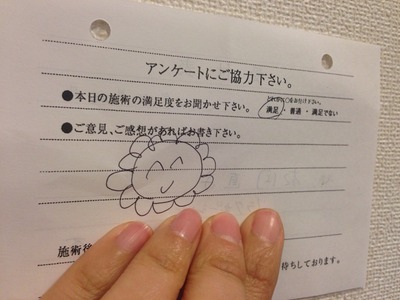 アンケートにご協力下さい。
どれか1つに○をお付け下さい。
●本日の施術の満足度をお聞かせ下さい。 満足・普通・満足でない
●ご意見、ご感想があればお書き下さい。
施術後
待ちしております。